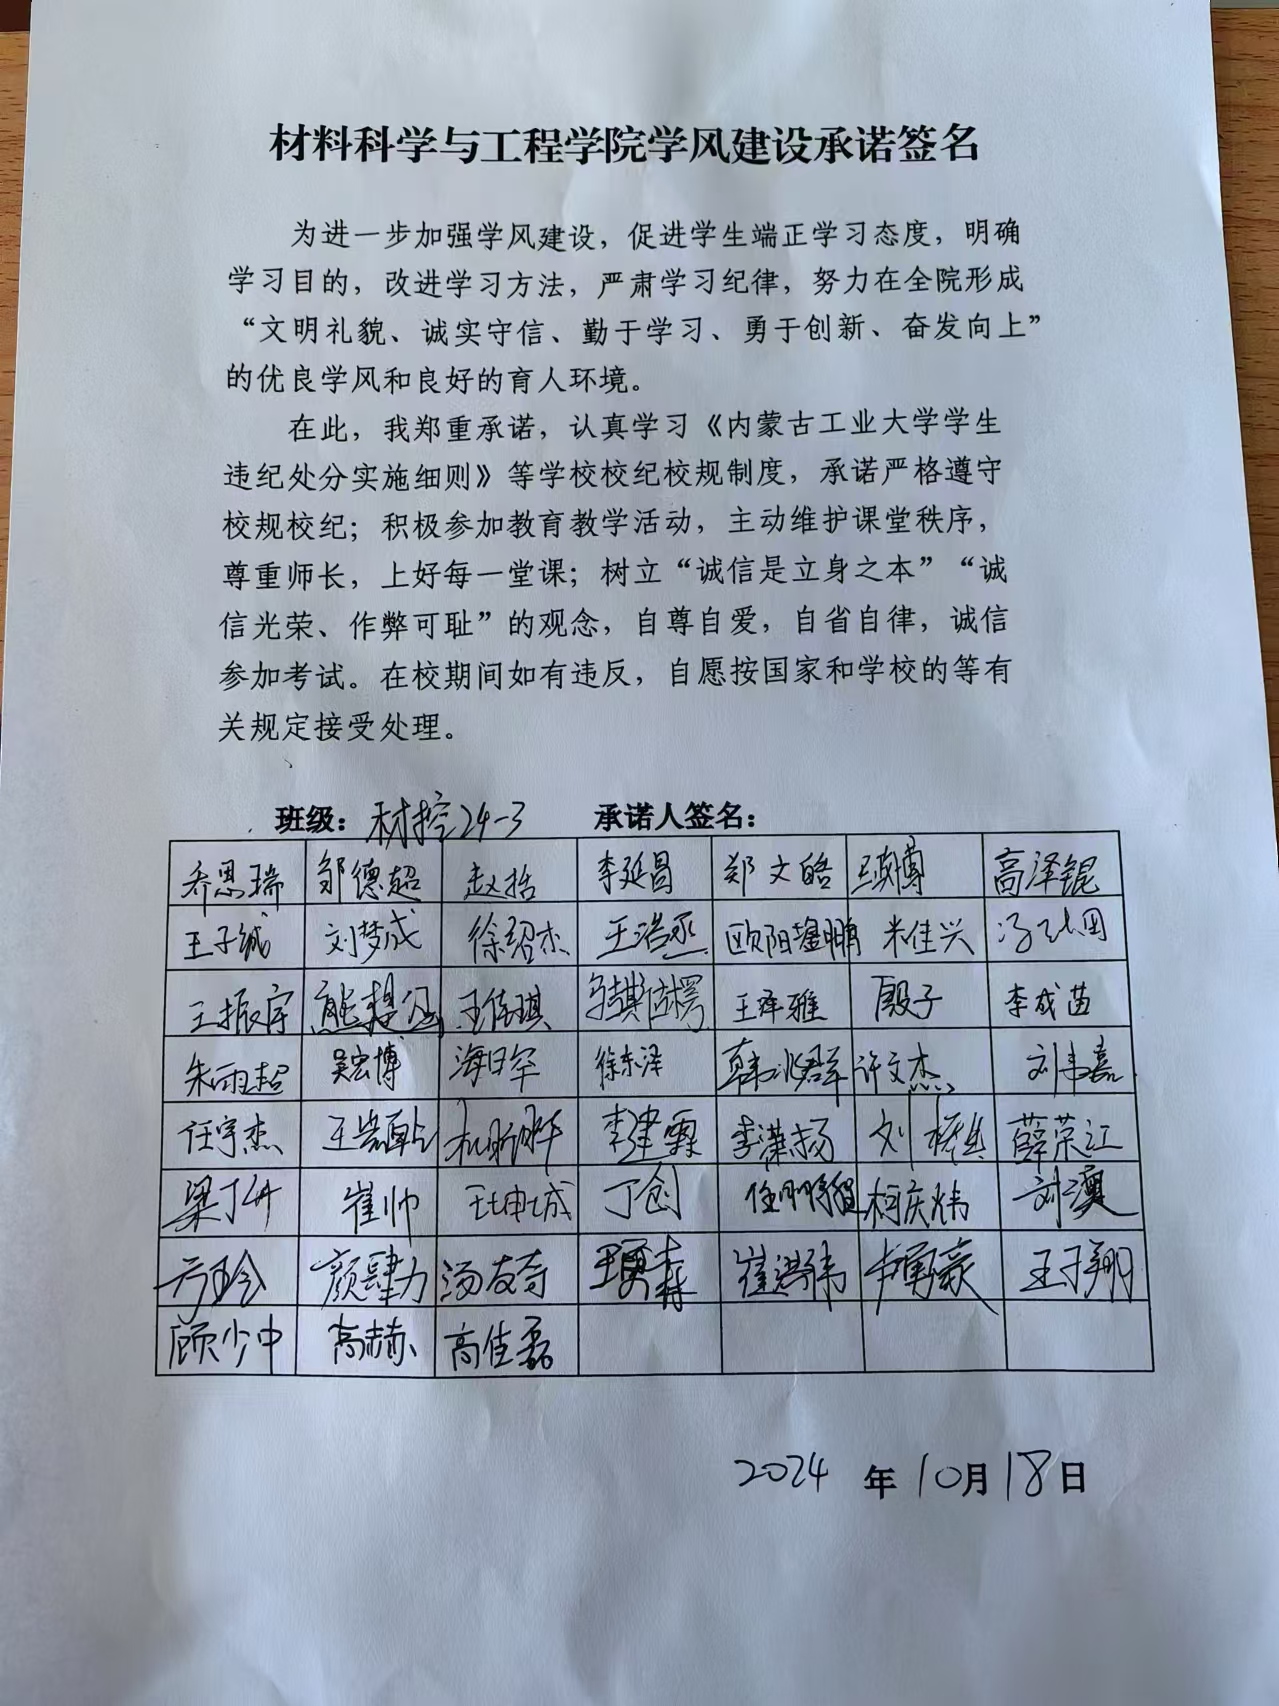 材料科学与工程学院学风建设承诺签名
为进一步加强学风建设，促进学生端正学习态度，明确
学习目的，改进学习方法，严肃学习纪律，努力在全院形成
“文明礼貌、诚实守信、勤于学习、勇于创新、奋发向上”
的优良学风和良好的育人环境。
在此，我郑重承诺，认真学习《内蒙古工业大学学生
违纪处分实施细则》等学校校纪校规制度，承诺严格遵守
校规校纪；积极参加教育教学活动，主动维护课堂秩序，
尊重师长，上好每一堂课；树立“诚信是立身之本”“诚
信光荣、作弊可耻”的观念，自尊自爱，自省自律，诚信
参加考试。在校期间如有违反，自愿按国家和学校的等有
关规定接受处理。
班级：材控24-3 承诺人签名：
乔思瑞 邹德超 赵括 李延昌 郑文皓 高泽锟
王子诚 刘梦成 徐绍杰 王浩丞 欧阳鋆鹏 米佳兴
王振宇 王佳琪 王泽雅 殷子 李成苗
朱雨超 吴宏博 海日罕 徐东泽 韩兆群 许文杰 刘韦嘉
任宇杰 李建霖 李潇扬 薛荣江
崔帅 王坤城 丁创 柯庆炜 刘澳
颜肆力 汤友奇 崔洪伟 卢勇豪 王子翔
顾少中 高赫 高佳磊
2024年10月18日